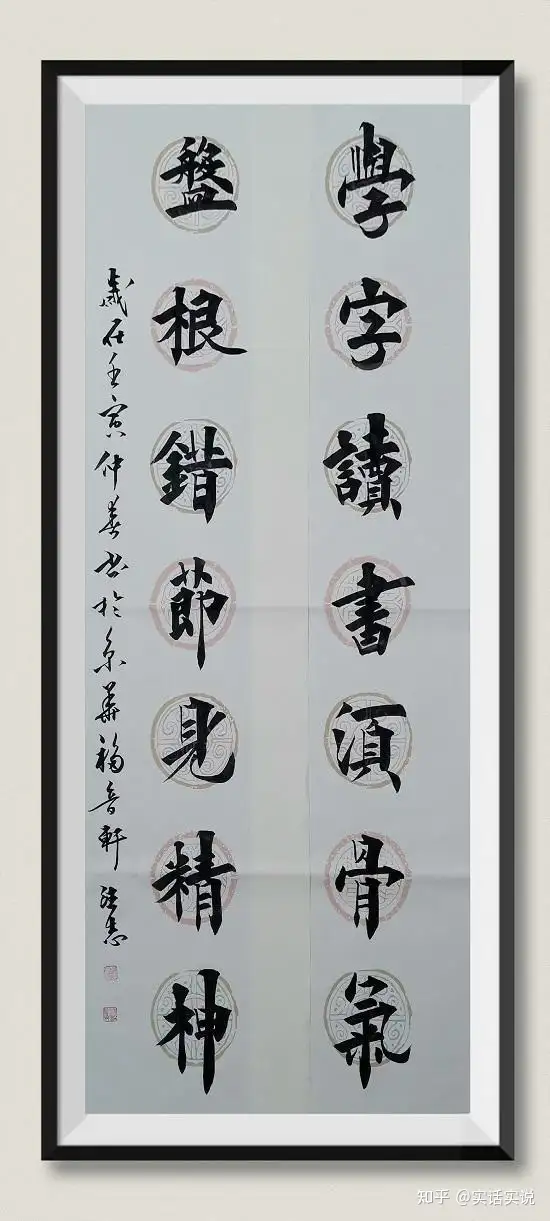 學字讀書須骨氣
盤根錯節見精神
歲在壬寅仲春書於京華福音軒
知乎 @实话实说